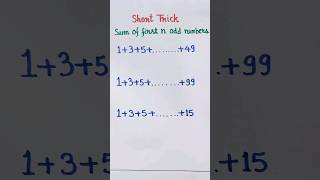 Short Trick
Sum of first n odd numbers
1+3+5+.........+49
1+3+5+........+99
1+3+5+.......+15